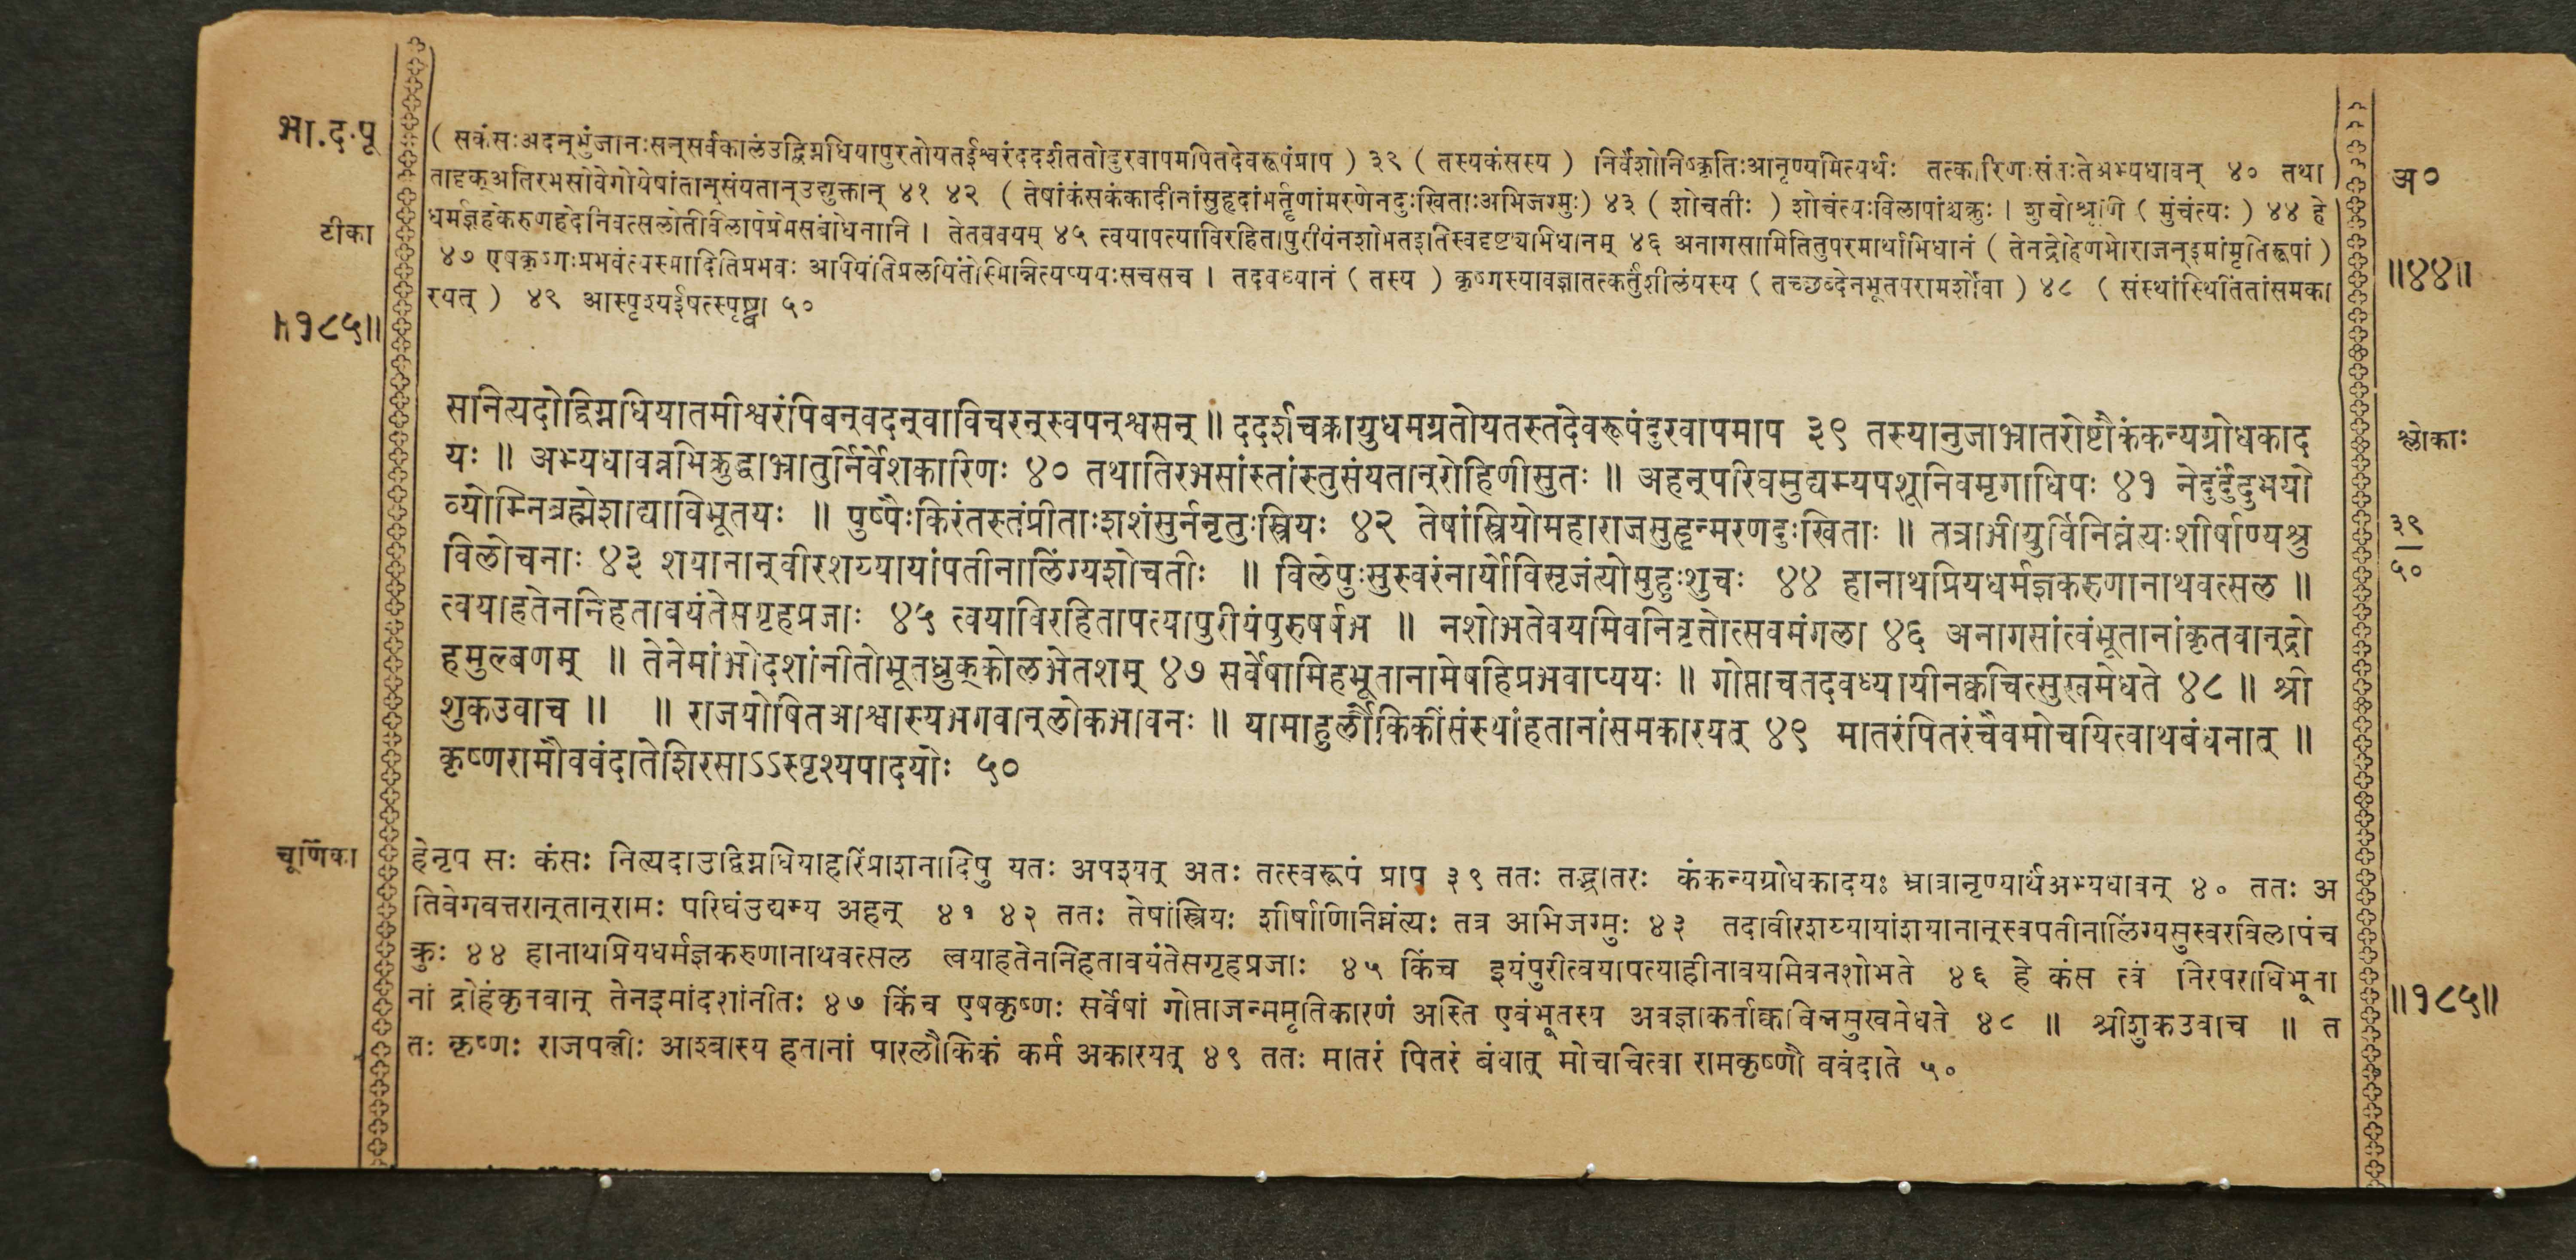 भा.द.पू
( सकंसःअदन्भुंजानःसन्सर्वकालंउद्विग्नधियापुरतोयतईश्वरंददर्शततोदुरवापमपितदेवरूपंप्राप ) ३९ ( तस्यकंसस्य ) निर्वेशोनिष्कृतिःआनृण्यमित्यर्थः तत्कारिणःसंतःतेअभ्यधावन् ४० तथा
तादृक्अतिरभसोवेगोयेषांतान्संयतान्उद्युक्तान् ४१ ४२ ( तेषांकंसकंकादीनांसुहृदांभर्तॄणांमरणेनदुःखिताःअभिजग्मुः) ४३ ( शोचतीः ) शोचंत्यःविलापांश्चक्रुः । शुचोश्रूणि ( मुंचंत्यः ) ४४ हे
टीका
धर्मज्ञहेकरुणहेदीनवत्सलेतिविलापेप्रेमसंबोधनानि । तेतववयम् ४५ त्वयापत्याविरहितापुरीयंनशोभतइतिस्वदृष्ट्याभिधानम् ४६ अनागसामितितुपरमार्थाभिधानं ( तेनद्रोहेणभोराजन्इमांमृतिरूपां )
४७ एषकृष्णःप्रभवंत्यस्मादितिप्रभवः अपियंतिप्रलयिंतोस्मिन्नित्यप्ययःसचसच । तदवध्यानं ( तस्य ) कृष्णस्यावज्ञातत्कर्तुंशीलंयस्य ( तच्छब्देनभूतपरामर्शोवा ) ४८ ( संस्थांस्थितिंतांसमका
रयत् ) ४९ आस्पृश्यईषत्स्पृष्ट्वा ५०
॥१८५॥
अ०
॥४४॥
सनित्यदोद्विग्नधियातमीश्वरंपिबन्वदन्वाविचरन्स्वपन्श्वसन् ॥ ददर्शचक्रायुधमग्रतोयतस्तदेवरूपंदुरवापमाप ३९ तस्यानुजाभ्रातरोष्टौकंकन्यग्रोधकाद
यः ॥ अभ्यधावन्नभिक्रुद्धाभ्रातुर्निर्वेशकारिणः ४० तथातिरभसांस्तांस्तुसंयतान्रोहिणीसुतः ॥ अहन्परिघमुद्यम्यपशूनिवमृगाधिपः ४१ नेदुर्दुंदुभयो
व्योम्निब्रह्मेशाद्याविभूतयः ॥ पुष्पैःकिरंतस्तंप्रीताःशशंसुर्ननृतुःस्त्रियः ४२ तेषांस्त्रियोमहाराजसुहृन्मरणदुःखिताः ॥ तत्राभीयुर्विनिघ्नंत्यःशीर्षाण्यश्रु
विलोचनाः ४३ शयानान्वीरशय्यायांपतीनालिंग्यशोचतीः ॥ विलेपुःसुस्वरंनार्योविसृजंत्योमुहुःशुचः ४४ हानाथप्रियधर्मज्ञकरुणानाथवत्सल ॥
त्वयाहतेननिहतावयंतेसगृहप्रजाः ४५ त्वयाविरहितापत्यापुरीयंपुरुषर्षभ ॥ नशोभतेवयमिवनिवृत्तोत्सवमंगला ४६ अनागसांत्वंभूतानांकृतवान्द्रो
हमुल्बणम् ॥ तेनेमांभोदशांनीतोभूतध्रुक्कोलभेतशम् ४७ सर्वेषामिहभूतानामेषहिप्रभवाप्ययः ॥ गोप्ताचतदवध्यायीनक्वचित्सुखमेधते ४८ ॥ श्री
शुकउवाच ॥ ॥ राजयोषितआश्वास्यभगवान्लोकभावनः ॥ यामाहुर्लौकिकींसंस्थांहतानांसमकारयत् ४९ मातरंपितरंचैवमोचयित्वाथबंधनात् ॥
कृष्णरामौववंदातेशिरसाऽऽस्पृश्यपादयोः ५०
श्लोकाः
३९
५०
चूर्णिका
हेनृप सः कंसः नित्यदाउद्विग्नधियाहरिंप्राशनादिषु यतः अपश्यत् अतः तत्स्वरूपं प्राप ३९ ततः तद्भ्रातरः कंकन्यग्रोधकादयः भ्रात्रानृण्यार्थंअभ्यधावन् ४० ततः अ
तिवेगवत्तरान्तान्रामः परिघंउद्यम्य अहन् ४१ ४२ ततः तेषांस्त्रियः शीर्षाणिनिघ्नंत्यः तत्र अभिजग्मुः ४३ तदावीरशय्यायांशयानान्स्वपतीनालिंग्यसुस्वरविलापंच
क्रुः ४४ हानाथप्रियधर्मज्ञकरुणानाथवत्सल त्वयाहतेननिहतावयंतेसगृहप्रजाः ४५ किंच इयंपुरीत्वयापत्याहीनावयमिवनशोभते ४६ हे कंस त्वं निरपराधिभूता
नां द्रोहंकृतवान् तेनइमांदशांनीतः ४७ किंच एषकृष्णः सर्वेषां गोप्ताजन्ममृतिकारणं अस्ति एवंभूतस्य अवज्ञाकर्ताक्वचिन्नसुखमेधते ४८ ॥ श्रीशुकउवाच ॥ त
तः कृष्णः राजपत्नीः आश्वास्य हतानां पारलौकिकं कर्म अकारयत् ४९ ततः मातरं पितरं बंधात् मोचयित्वा रामकृष्णौ ववंदाते ५०
॥१८५॥